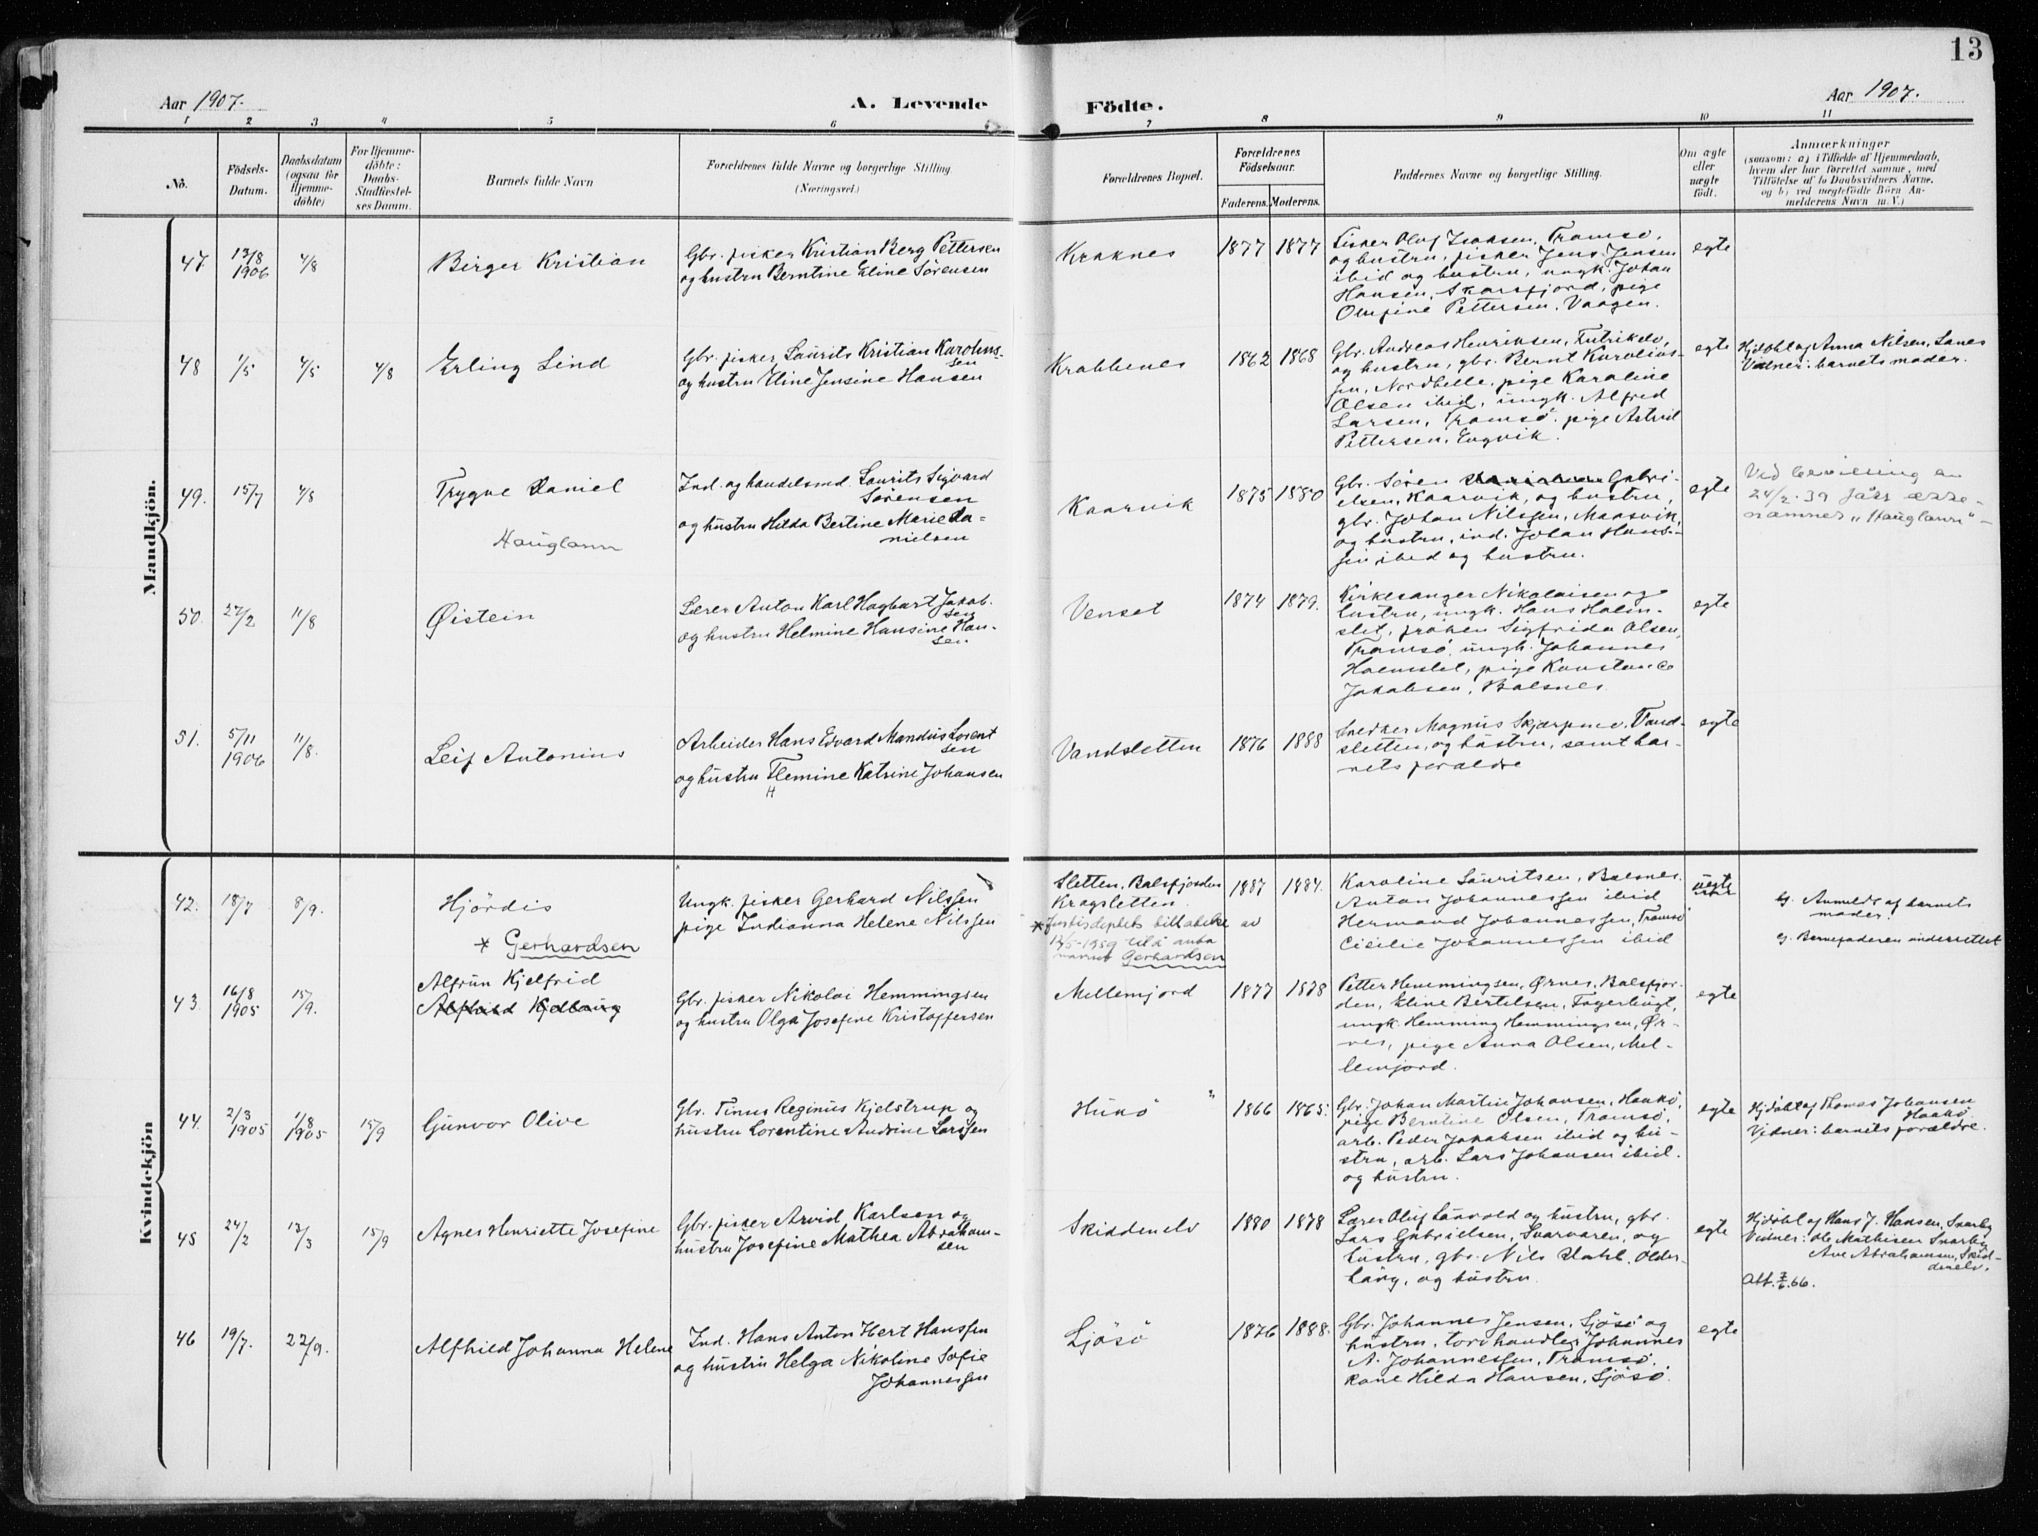 13
Aar 1907.
A. Levende
Födte.
Aar 1907.
1 2 3 4 5 6 7 8 9 10 11
No.
Födsels-
Datum.
Daabsdatum
(ogsaa for
Hjemme-
döbte)
For Hjemme-
döbte:
Daabs-
Stadfæstel-
ses Datum.
Barnets fulde Navn
Forældrenes fulde Navne og borgerlige Stilling
(Næringsvei.)
Forældrenes Bopæl.
Forældrenes
Födselsaar.
Faderens. Moderens.
Faddernes Navne og borgerlige Stilling.
Om ægte
eller
uægte
født.
Anmærkninger
(saasom: a) i Tilfælde af Hjemmedaab,
hvem der har forrettet samme, med
Tilföielse af to Daabsvidners Navne.
og b) ved uægtefödte Börn An-
melderens Navn m. V.)
Mandkjön.
47.
13/8
1906
4/8
Birger Kristian
Gbr. fisker Kristian Berg Pettersen
og hustru Berntine Eline Sørensen
Kraknes
1877 1877
Fisker Olaf Isaksen, Tromsø,
og hustru, fisker Jens Jensen
ibid og hustru, ungk. Johan
Hansen, Skarsfjord, pige
Olufine Pettersen, Vaagen.
egte
48
1/5
4/5
4/8
Erling Lind
Gbr. fisker Laurits Kristian Karolius-
sen
og hustru Eline Jensine Hansen
Krabbenes
1862 1868
Gbr. Andreas Henriksen, Futrikelv,
og hustru, gbr. Bernt Karolius-
sen, Nordbelle, pige Karoline
Olsen ibid, ungk. Alfred
Larsen, Tromsø, pige Astrid
Pettersen, Engvik.
egte
Hjdøbt af Anna Nilsen, Lanes
Vidner: barnets moder.
49.
15/7
4/8
Trygve Daniel
Hauglann
Ind. og handelsmd. Laurits Sigvard
Sørensen
og hustru Hilda Bertine Marie Da-
nielsen
Kaarvik
1875 1880
Gbr. Søren Gabri-
elsen, Kaarvik, og hustru,
gbr. Johan Nilssen, Maasvik,
og hustru, ind. Johan Hans-
sen ibid og hustru.
egte
Ved bevilling av
24/2-39
"Hauglann"
50.
27/2
11/8
Øistein
Lærer Anton Karl Hagbart Jakob-
sen
og hustru Helmine Hansine Han-
sen
Venset
1874 1879.
Kirkesanger Nikolaisen og
hustru, ungk. Hans Holm-
slet, frøken Sigfrida Olsen,
Tromsø, ungk. Johannes
Holmslet, pige Konstance
Jakobsen, Balsnes.
egte
51.
5/11
1906
11/8.
Leif Antonius
Arbeider Hans Edvard Mandius Lorent
sen
og hustru Flemine Katrine Johansen
H
Vandsletten
1876 1888
Snedker Magnus Skjærpmo, Vand-
sletten, og hustru, samt bar-
nets forældre
egte
Kvindekjön
42.
18/7
8/9.
Hjördis
* Gerhardsen
Ungk. fisker Gerhard Nilssen
pige Indianna Helene Nilssen
Sletten, Balsfjorden
Kragsletten.
* Justisdeptets tillatelse av
12/5-1959 til å anta
navnet Gerhardsen
1887 1884.
Karoline Lauritsen, Balsnes
Anton Johannessen ibid
Hermand Johannessen, Tromsø
Cicilie Johannessen ibid
uegte
Anmeldt af barnets
moder.
Barnefaderen underrettet
43.
16/8
1905
15/9.
Alfrun Kjelfrid
Alfhild Kjellaug
Gbr. fisker Nikolai Hemmingsen
og hustru Olga Josefine Kristoffersen
Mellemjord
1877 1878
Petter Hemmingsen, Ørnes, Balsfjor-
den, Eline Bertelsen, Fagerbugt,
ungk. Hemming Hemmingsen, Ør-
nes, pige Anna Olsen, Mel-
lemjord.
egte
44.
2/3
1905
1/8
1905
15/9
Gunvor Olive
Gbr. Tinus Reginus Kjelstrup og
hustru Lorentine Andrine Larssen
Hukø "
1866 1865.
Gbr. Johan Martin Johansen, Haakø,
pige Berntine Olsen, Tromsø,
arb. Peder Jakobsen ibid og hu-
stru, arb. Lars Johansen ibid.
og hustru.
egte
Hjdøbt af Thomas Johansen
Haakø.
Vidner: barnets forældre.
45
24/2
13/3
15/9
Agnes Henriette Josefine
Gbr. fisker Arvid Karlsen og
hustru Josefine Mathea Abraham-
sen
Skiddenelv
1880 1878
Lærer Oluf Lauvold og hustru, gbr.
Lars Gabrielsen, Svarvaren, og
hustru, gbr. Nils Dahl, Older-
haug, og hustru.
egte
Hjdøbt af Hans J. Hansen, Snarby
Vidner: Ole Mathisen Snarby
Ane Abrahamsen, Skid-
denelv.
Att. 7/6.66.
46
19/7.
22/9.
Alfhild Johanna Helene
Ind. Hans Anton Hert Hanssen
og hustru Helga Nikoline Sofie
Johannessen
Ljøsø
1876 1888.
Gbr. Johannes Jensen, Sjøsø og
hustru, torvhandler Johannes
A. Johannessen, Tromsø,
kone Hilda Hansen, Sjøsø.
egte